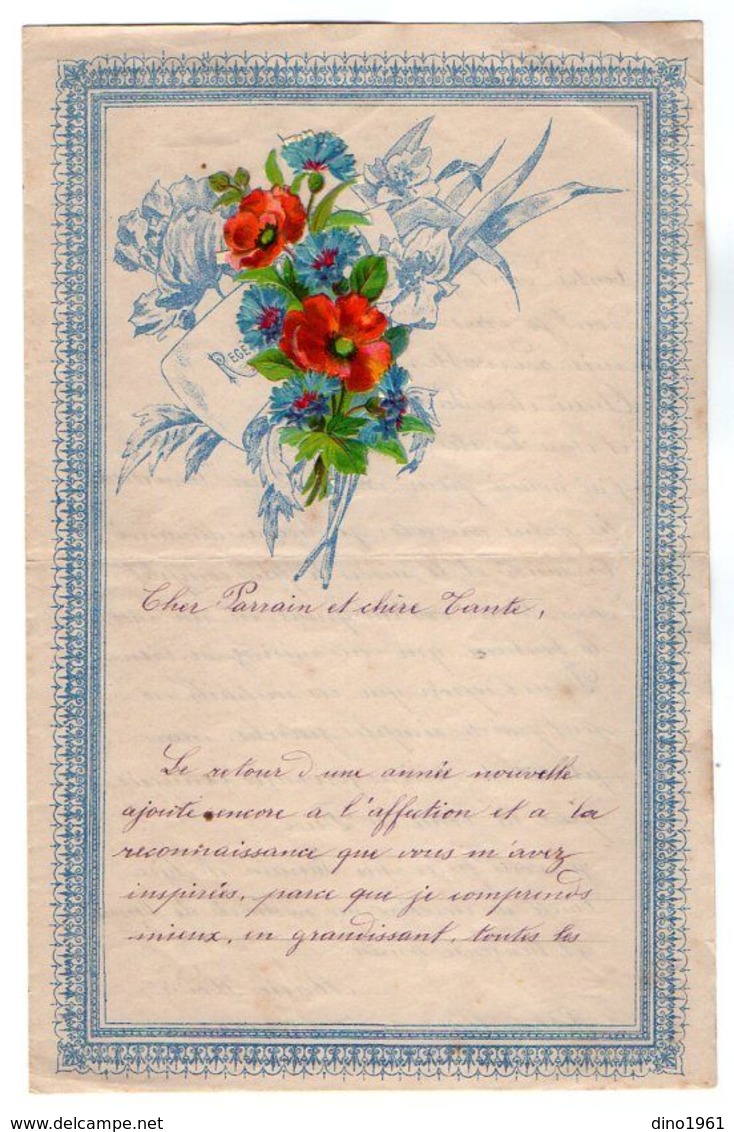 REGE
Cher Parrain et chère Tante,
Le retour d'une année nouvelle
ajoute encore a l'affection et a la
reconnaissance que vous m'avez
inspirées, parce que je comprends
mieux, en grandissant, toutes les
dino1961